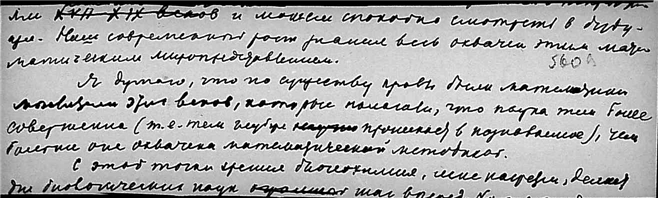 XVII-XIX веков и можем спокойно смотреть в буду-
щее. Наш современный рост знания весь охвачен этим мате-
матическим миропредставлением.
560
Я думаю, что по существу правы были математики
этих веков, которые полагали, что наука тем более
совершенна (т.е. тем глубже проникает в познаваемое), чем
более она охвачена математической методикой.
С этой точки зрения биогеохимия, мне кажется, делает
для биологических наук шаг вперед